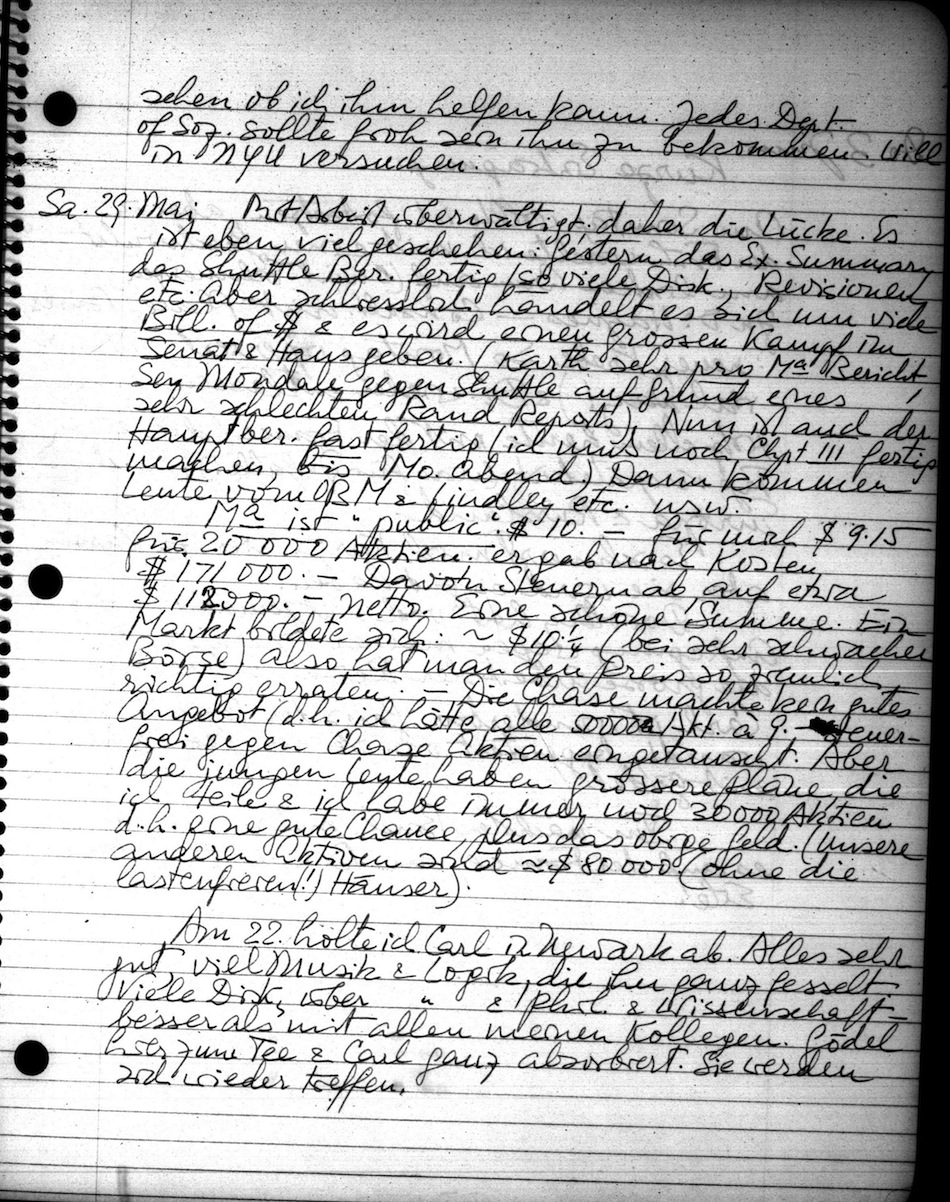 sehen ob ich ihm helfen kann. Jedes Dept.
of Soz. sollte froh sein ihn zu bekommen. Will
in NYU versuchen.
Sa. 29. Mai Mit Arbeit überwältigt, daher die Lücke. Es
ist eben viel geschehen: gestern das Ex. Summary
des Shuttle Ber. fertig (so viele Disk., Revisionen
etc. Aber schliesslich handelt es sich um viele
Bill. of $ & es wird einen grossen Kampf im
Senat & Haus geben. (Karth sehr pro Ma Bericht,
Sen Mondale gegen Shuttle auf grund eines
sehr schlechten Rand Reports). Nun ist auch der
Hauptber. fast fertig (ich muss noch Chpt III fertig
machen, bis Mo. Abend.) Dann kommen
Leute vom OBM & Lindley etc. usw.
Ma ist "public". $ 10.– für mich $ 9.15
für 20 000 Aktien. ergab nach Kosten
$ 171 000.– Davon Steuern ab, auf etwa
$ 112 000.– netto. Eine schöne Summe. Ein
Markt bildete sich: ~ $10 ¼ (bei sehr schwacher
Börse) also hat man den Preis so ziemlich
richtig erraten. – Die Chase machte kein gutes
Angebot (d.h. ich hätte alle 50000 Akt. à 9.– steuer-
frei gegen Chase Aktien eingetauscht. Aber
die jungen Leute haben grössere Pläne, die
ich teile & ich habe immer noch 30000 Aktien
d.h. eine gute Chance, plus das obige Geld. (Unsere
anderen Aktiven sind ≈ $ 80 000 (ohne die
lastenfreien(!) Häuser).
Am 22. holte ich Carl in Newark ab. Alles sehr
gut, viel Musik & Logik, die ihn ganz fesselt.
Viele Disk. über " & Phil. & Wissenschaft –
besser als mit allen meinen Kollegen. Gödel
hier zum Tee & Carl ganz absorbiert. Sie werden
sich wieder treffen.